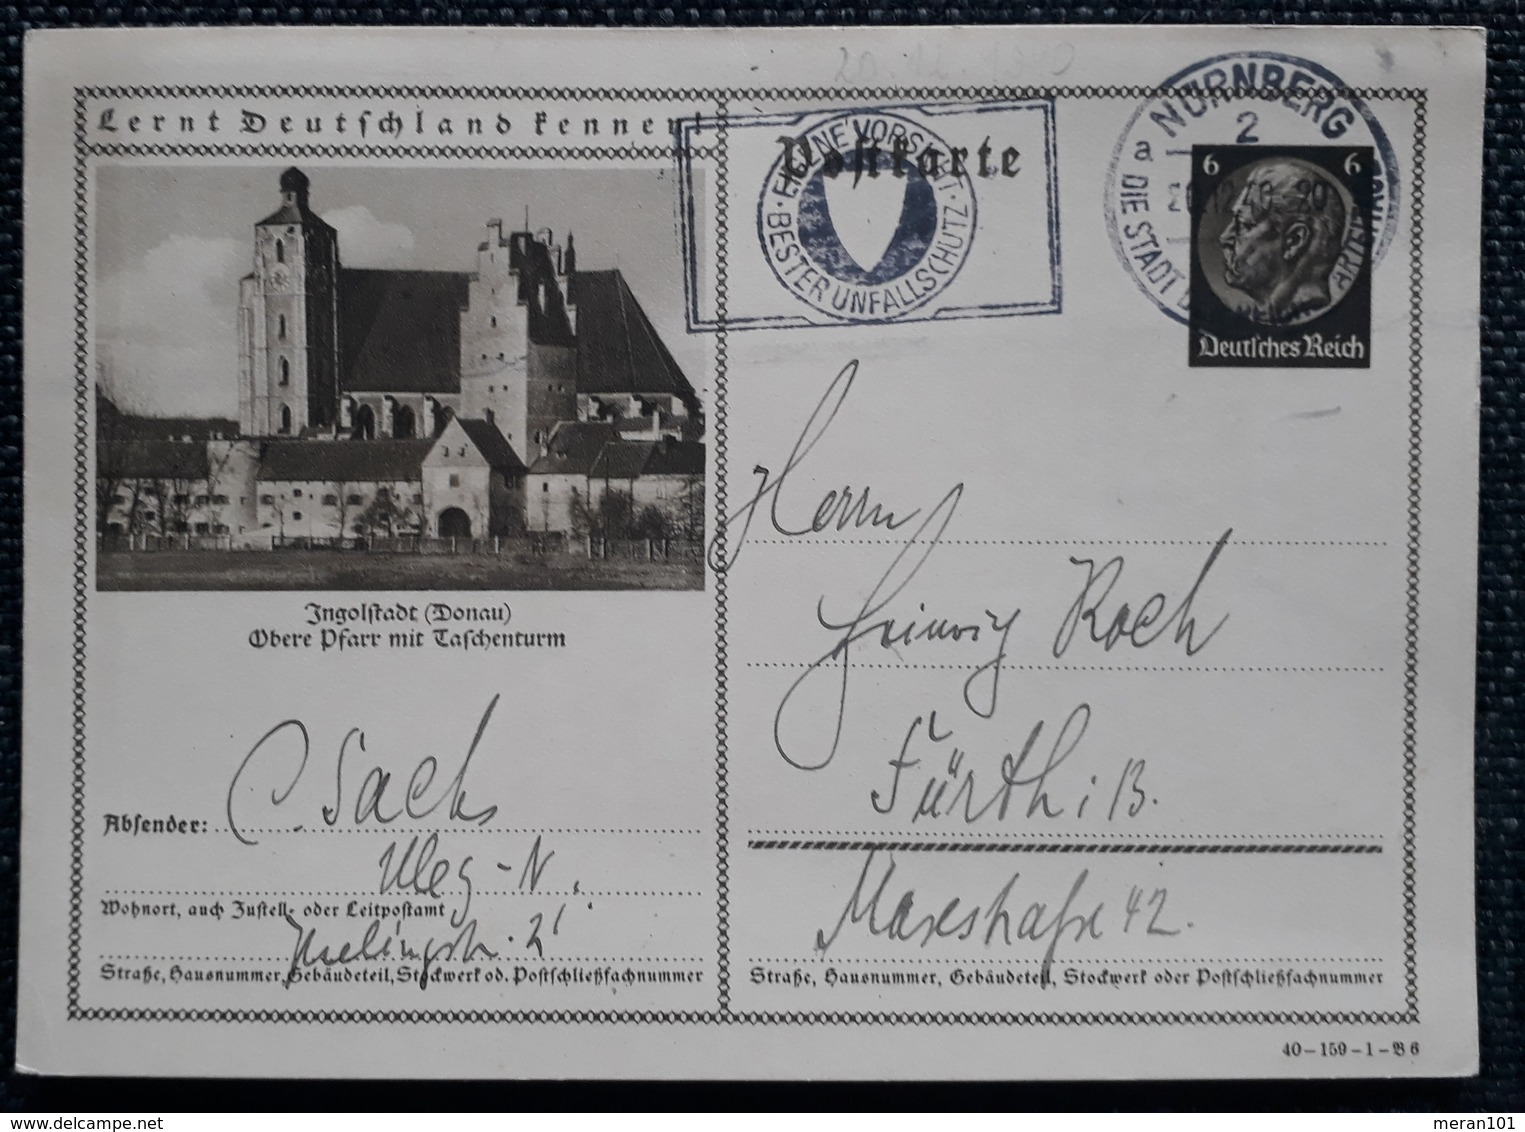 20.12.1940
Lernt Deutschland kennen!
Postkarte
EIGENE VORSICHT · BESTER UNFALLSCHUTZ ·
NÜRNBERG
2
a
20.12.40. 20
DIE STADT DER REICHSPARTEITAGE
6 6
Deutsches Reich
Ingolstadt (Donau)
Obere Pfarr mit Taschenturm
Herrn
Heinrich Koch
Fürth i B.
Maxstraße 42.
Straße, Hausnummer, Gebäudeteil, Stockwerk oder Postschließfachnummer
Sachs
Absender:
Nbg-N.
Wohnort, auch Zustell- oder Leitpostamt
Straße, Hausnummer, Gebäudeteil, Stockwerk od. Postschließfachnummer
40-159-1-B6
meran101